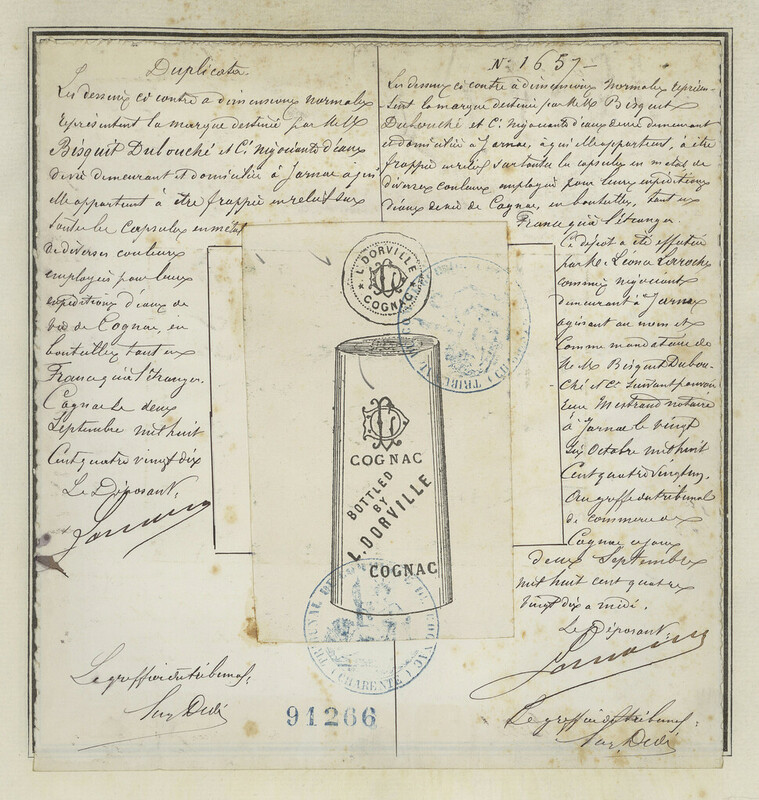 Duplicata.
Les dessins ci contre a dimensions normales
représentent la marque destinée par M.M
Bisquit Dubouché et Cie, négociants d'eaux
de vie demeurant et domiciliés à Jarnac à qui
elle appartient à être frappée en relief sur
toutes les capsules en métal
de diverses couleurs
employées pour leurs
expéditions d'eaux de
vie de Cognac, en
bouteilles, tant en
France qu'à l'étranger.
Cognac le deux
Septembre mil huit
Cent quatre vingt dix
Le Déposant,
Le greffier du tribunal,
No 1657-
Les dessins ci contre a dimensions normales représen-
tent la marque destinée par M.M Bisquit
Dubouché et Cie Négociants d'eaux de vie demeurant
et domiciliés à Jarnac, à qui elle appartient, à être
frappée en relief sur toutes les capsules en métal de
diverses couleurs employées pour leurs expéditions
d'eaux de vie de Cognac, en bouteilles, tant en
France qu'à l'étranger.
Ce dépôt a été effectué
par M. Léonce
commis négociant
demeurant à Jarnac
agissant au nom et
comme mandataire de
M.M Bisquit Dubou-
ché & Cie suivant pouvoir
notaire
à Jarnac le vingt
six Octobre mil huit
Cent quatre vingt un,
Au greffe du tribunal
de commerce de
Cognac ce jour
deux Septembre
mil huit cent quatre
vingt dix a midi.
Le Déposant,
Le greffier du tribunal,
L. DORVILLE
COGNAC
COGNAC
BOTTLED
BY
L. DORVILLE
COGNAC
TRIBUNAL DE COMMERCE DE COGNAC
(CHARENTE)
91266